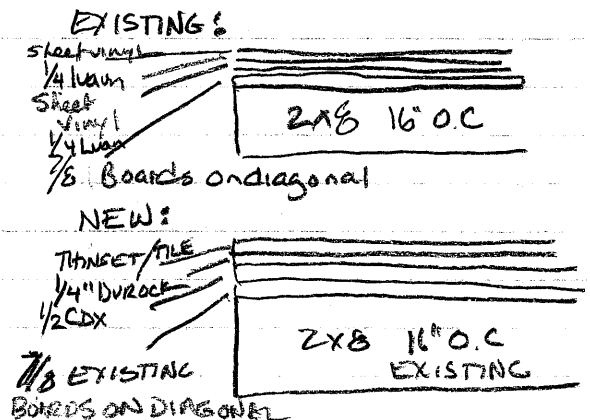 EXISTING:
Sheet vinyl
1/4 luaun
Sheet
vinyl
1/4 Luan
7/8 Boards on diagonal
2x8 16" O.C
NEW:
THINSET/TILE
1/4" DUROCK
1/2 CDX
7/8 EXISTING
BOARDS ON DIAGONAL
2x8 16" O.C
EXISTING